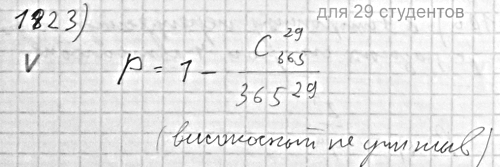 1823)
для 29 студентов
V
p = 1 - C²⁹₃₆₅ / 365²⁹
(високосный не учитыв)